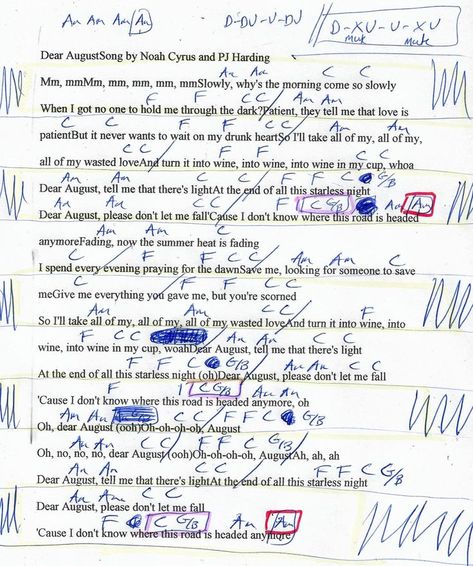 Am Am Am Am D-DU-U-DU D-XU-U-XU
mute mute
Dear AugustSong by Noah Cyrus and PJ Harding
Am Am C C
Mm, mmMm, mm, mm, mm, mmSlowly, why's the morning come so slowly
F F C C Am Am
When I got no one to hold me through the dark?Patient, they tell me that love is
C C F F C C Am
patientBut it never wants to wait on my drunk heartSo I'll take all of my, all of my,
Am C C F F
all of my wasted loveAnd turn it into wine, into wine, into wine in my cup, whoa
Am Am C C F F C G/B
Dear August, tell me that there's lightAt the end of all this starless night
Am Am C C F C G/B Am Am
Dear August, please don't let me fall'Cause I don't know where this road is headed
Am Am C C
anymoreFading, now the summer heat is fading
F F C C Am Am
I spend every evening praying for the dawnSave me, looking for someone to save
C C F F C C
meGive me everything you gave me, but you're scorned
Am Am C C F
So I'll take all of my, all of my, all of my wasted loveAnd turn it into wine, into
F C C Am Am C C
wine, into wine in my cup, woahDear August, tell me that there's light
F F C G/B Am Am C C
At the end of all this starless night (oh)Dear August, please don't let me fall
F C G/B Am Am
'Cause I don't know where this road is headed anymore, oh
Am Am C C F F C G/B
Oh, dear August (ooh)Oh-oh-oh-oh, August
Am Am C C F F C G/B
Oh, no, no, no, dear August (ooh)Oh-oh-oh-oh, AugustAh, ah, ah
Am Am C C F F C G/B
Dear August, tell me that there's lightAt the end of all this starless night
Am Am C C
Dear August, please don't let me fall
F C G/B Am Am
'Cause I don't know where this road is headed anymore